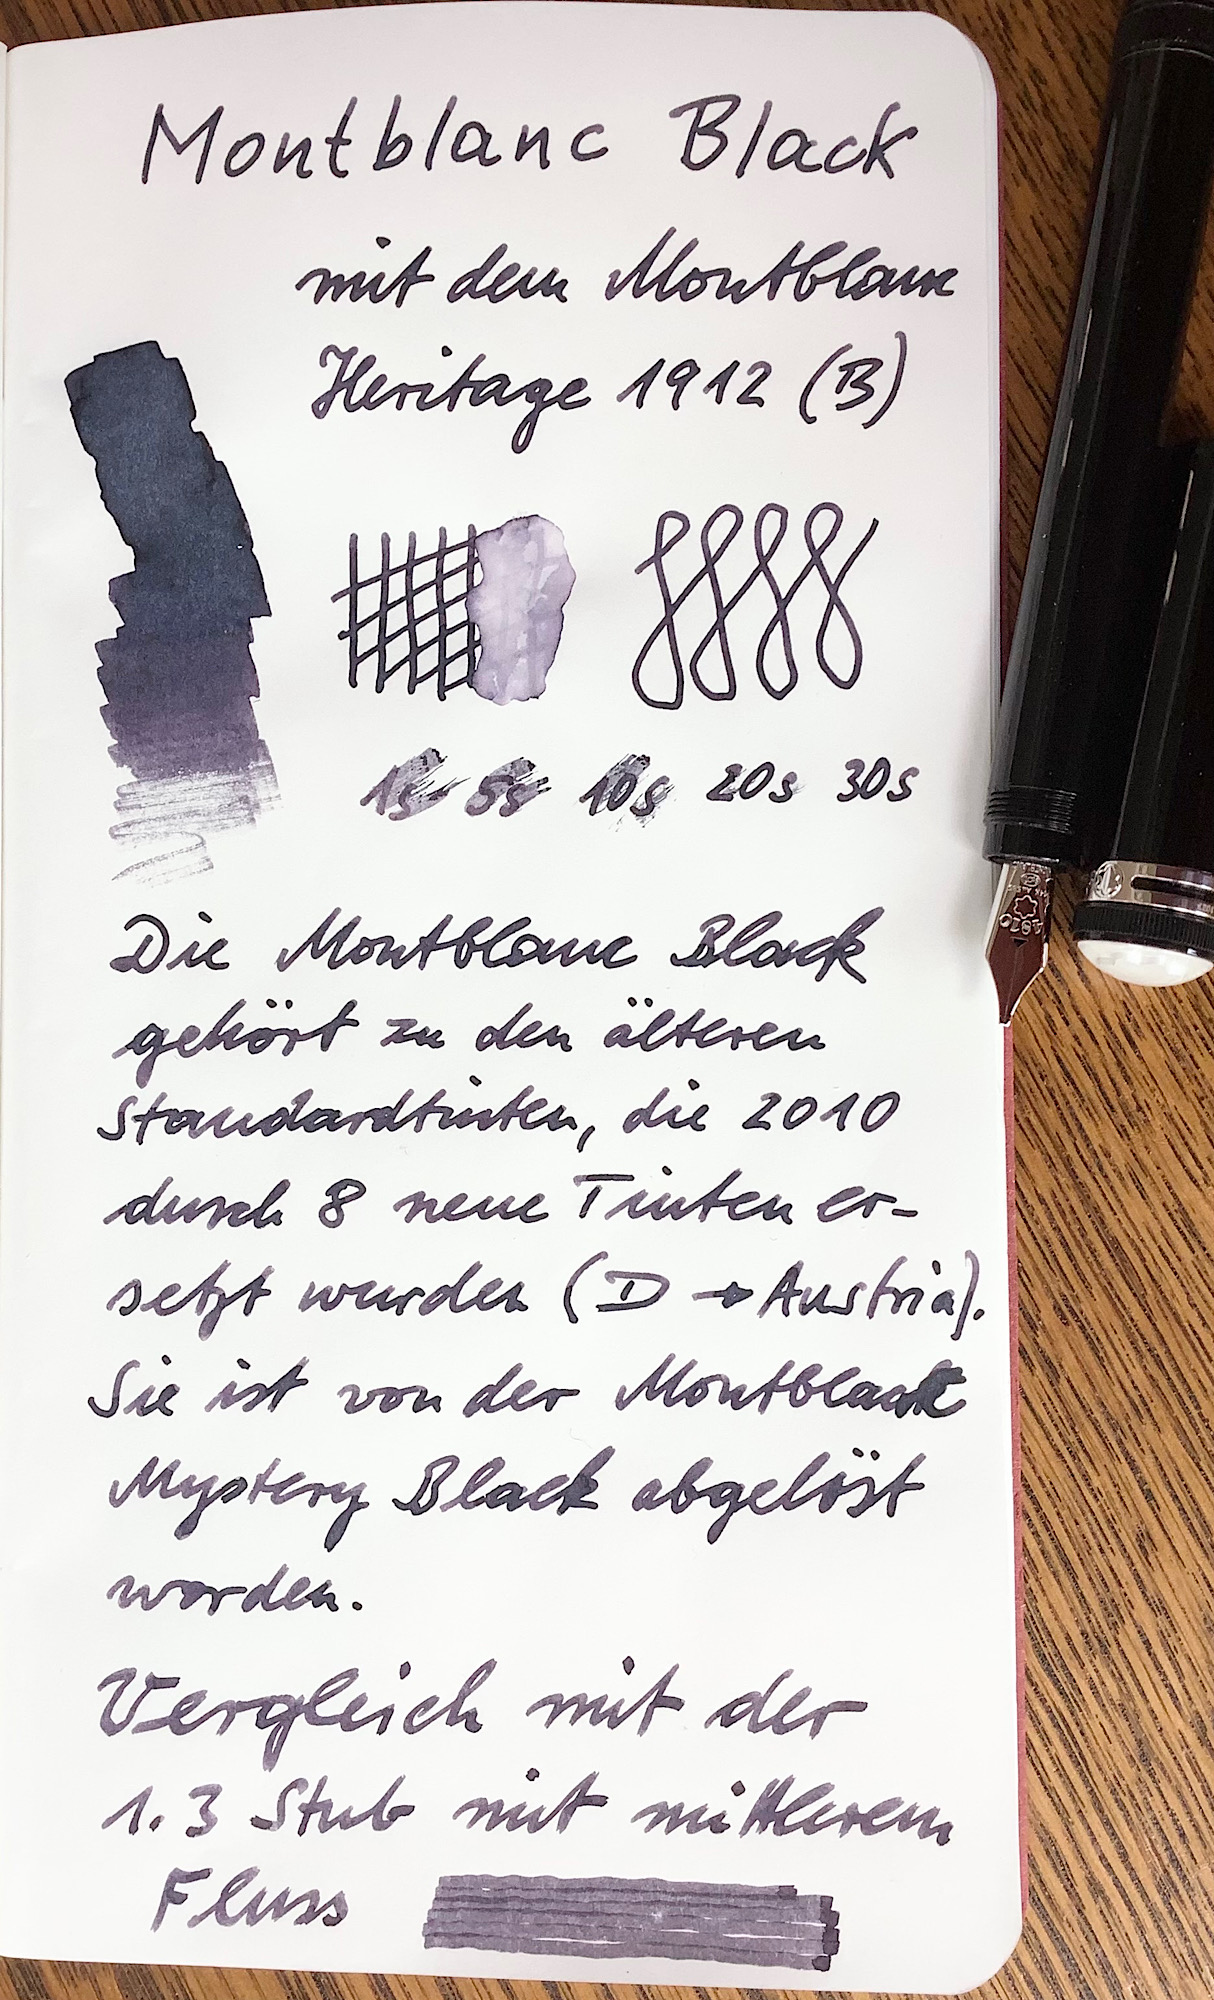 Montblanc Black
mit dem Montblanc
Heritage 1912 (B)
1s 5s 10s 20s 30s
Die Montblanc Black
gehört zu den älteren
Standardtinten, die 2010
durch 8 neue Tinten er-
setzt wurden (D → Austria).
Sie ist von der Montblanc
Mystery Black abgelöst
worden.
Vergleich mit der
1.3 Stub mit mittlerem
Fluss
4810